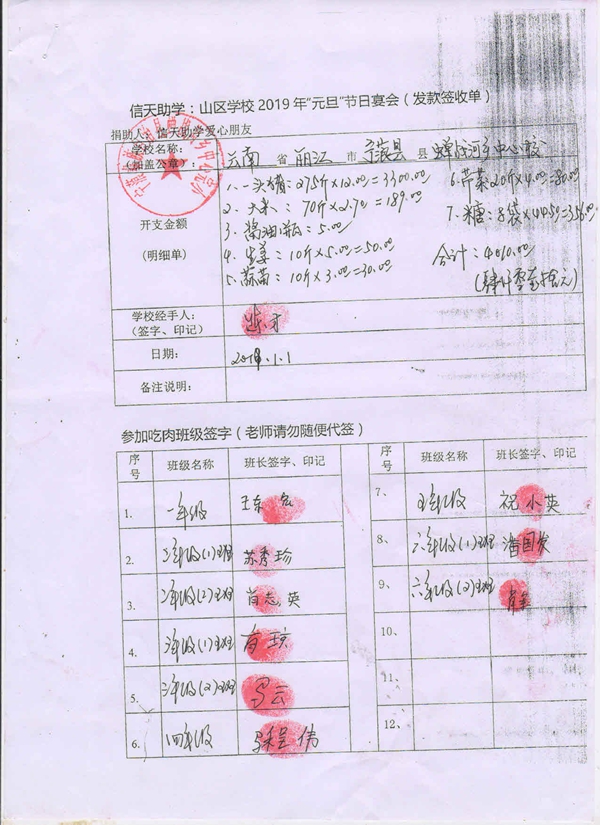 信天助学：山区学校 2019 年“元旦”节日宴会（发款签收单）
捐助人：信天助学爱心朋友
学校名称：
（加盖公章）：
云南 省 丽江 市 宁蒗县 县 中心校
开支金额
（明细单）
1. 一头猪：275斤×12.00=3300.00
2. 大米：70斤×2.70=189.00
3. 酱油1瓶：5.00
4. 生姜：10斤×5.00=50.00
5. 蒜苗：10斤×3.00=30.00
6. 芹菜20斤×4.00=80.00
7. 糖：8袋×44.5=356.00
合计：4010.00
（肆仟零壹拾元）
学校经手人：
（签字、印记）
日期：
2019.1.1
备注说明：
参加吃肉班级签字（老师请勿随便代签）
序号 班级名称 班长签字、印记
1. 一年级 王东宏
2. 二年级(1)班 苏秀珍
3. 二年级(2)班 肖志英
4. 三年级(1)班
5. 三年级(2)班 马云
6. 四年级 伟
序号 班级名称 班长签字、印记
7、 五年级 祝小英
8、 六年级(1)班 潘国发
9、 六年级(2)班
10、
11、
12、